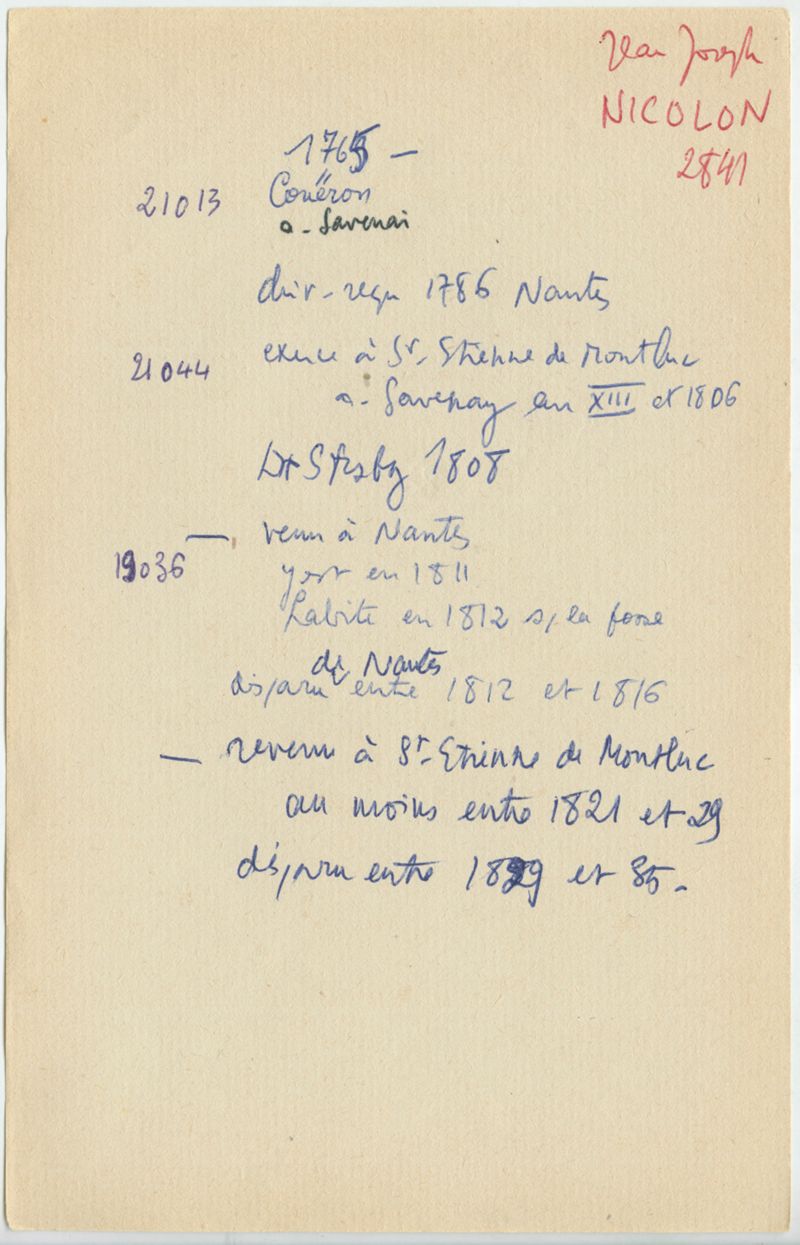 Jean Joseph
NICOLON
2841
1765 –
21013 Couëron
a. Savenai
chir. reçu 1786 Nantes
21044 exerce à St. Etienne de Montluc
a. Savenay an XIII et 1806
Dr Strasbg 1808
— venu à Nantes
19036 y est en 1811
habite en 1812 s/ la fosse
de Nantes
disparu entre 1812 et 1816
— revenu à St. Etienne de Montluc
au moins entre 1821 et 29
disparu entre 1829 et 35.